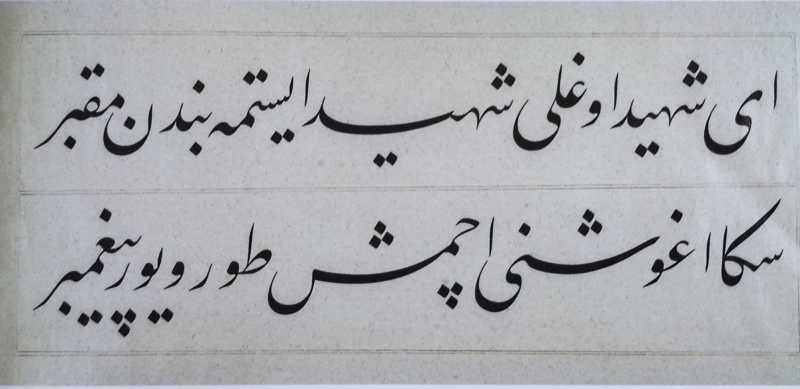 ای شهید اوغلی شهید ایستمه بندن مقبر
سکا اغوشنی اچمش طورویور پیغمبر